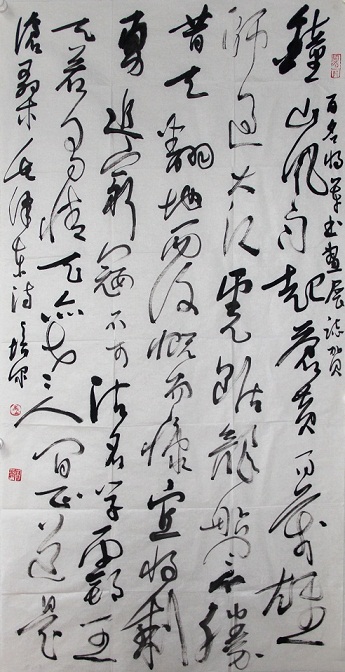 百名将军书画展誌贺
鐘山风雨起苍黄百万雄
师过大江虎踞龍盘今勝
昔天翻地覆慨而慷宜将剩
勇追窮寇不可沽名学霸王
天若有情天亦老人间正道是
滄桑毛泽东诗